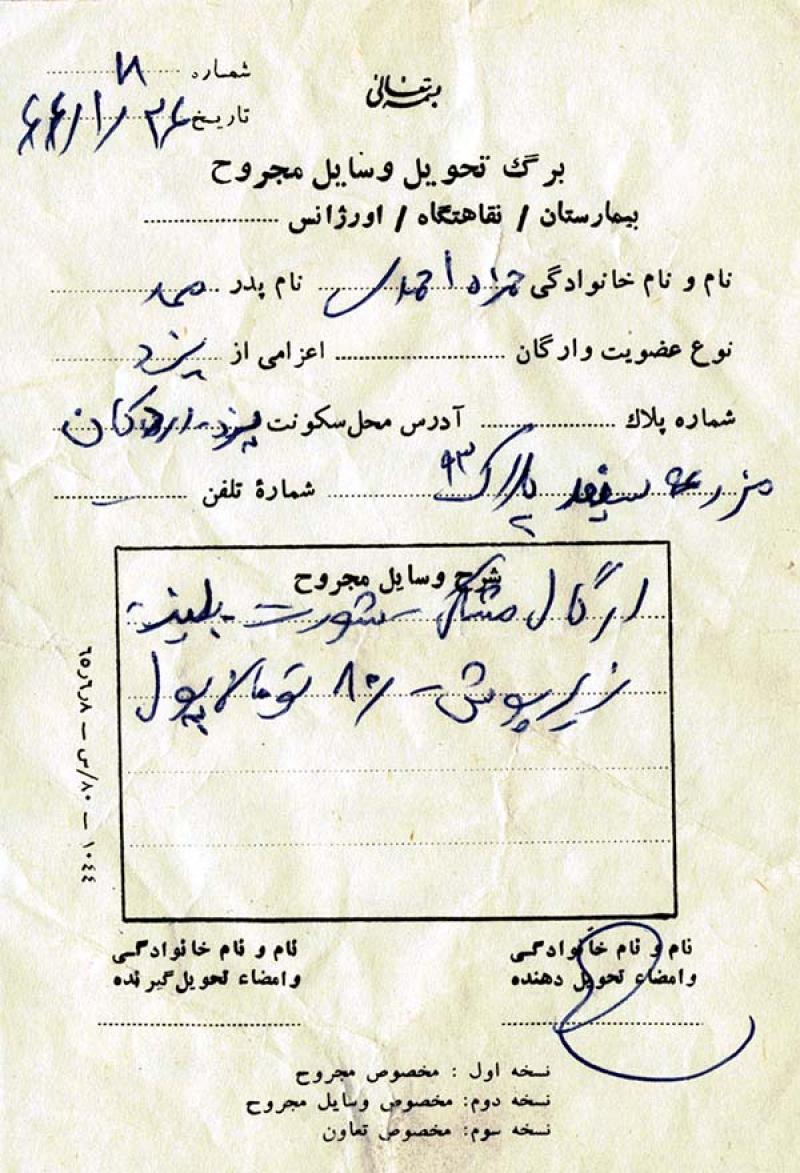 بسمه تعالی
شماره ۱۸
تاریخ ۶۶/۱/۲۶
برگ تحویل وسایل مجروح
بیمارستان / نقاهتگاه / اورژانس
نام و نام خانوادگی حمزه احمدی نام پدر محمد
نوع عضویت و ارگان اعزامی از یزد
شماره پلاک آدرس محل سکونت یزد - اردکان
مزرعه سیفد پلاک ۹۳ شمارهٔ تلفن -
شرح وسایل مجروح
مشکی شورت
زیرپوش - ۸۰ تومان پول
۱۰۴۴ — ۸۰/س — ۶۵ر۶ر۸
نام و نام خانوادگی
و امضاء تحویل دهنده
نام و نام خانوادگی
و امضاء تحویل گیرنده
نسخه اول : مخصوص مجروح
نسخه دوم: مخصوص وسایل مجروح
نسخه سوم: مخصوص تعاون